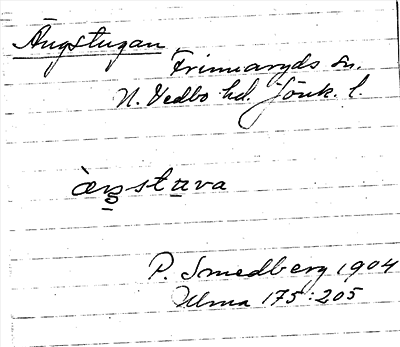 Ängstugan
Frinnaryds sn.
N. Vedbo hd. Jönk. l.
àŋstuva
P. Smedberg 1904
Ulma 175:205